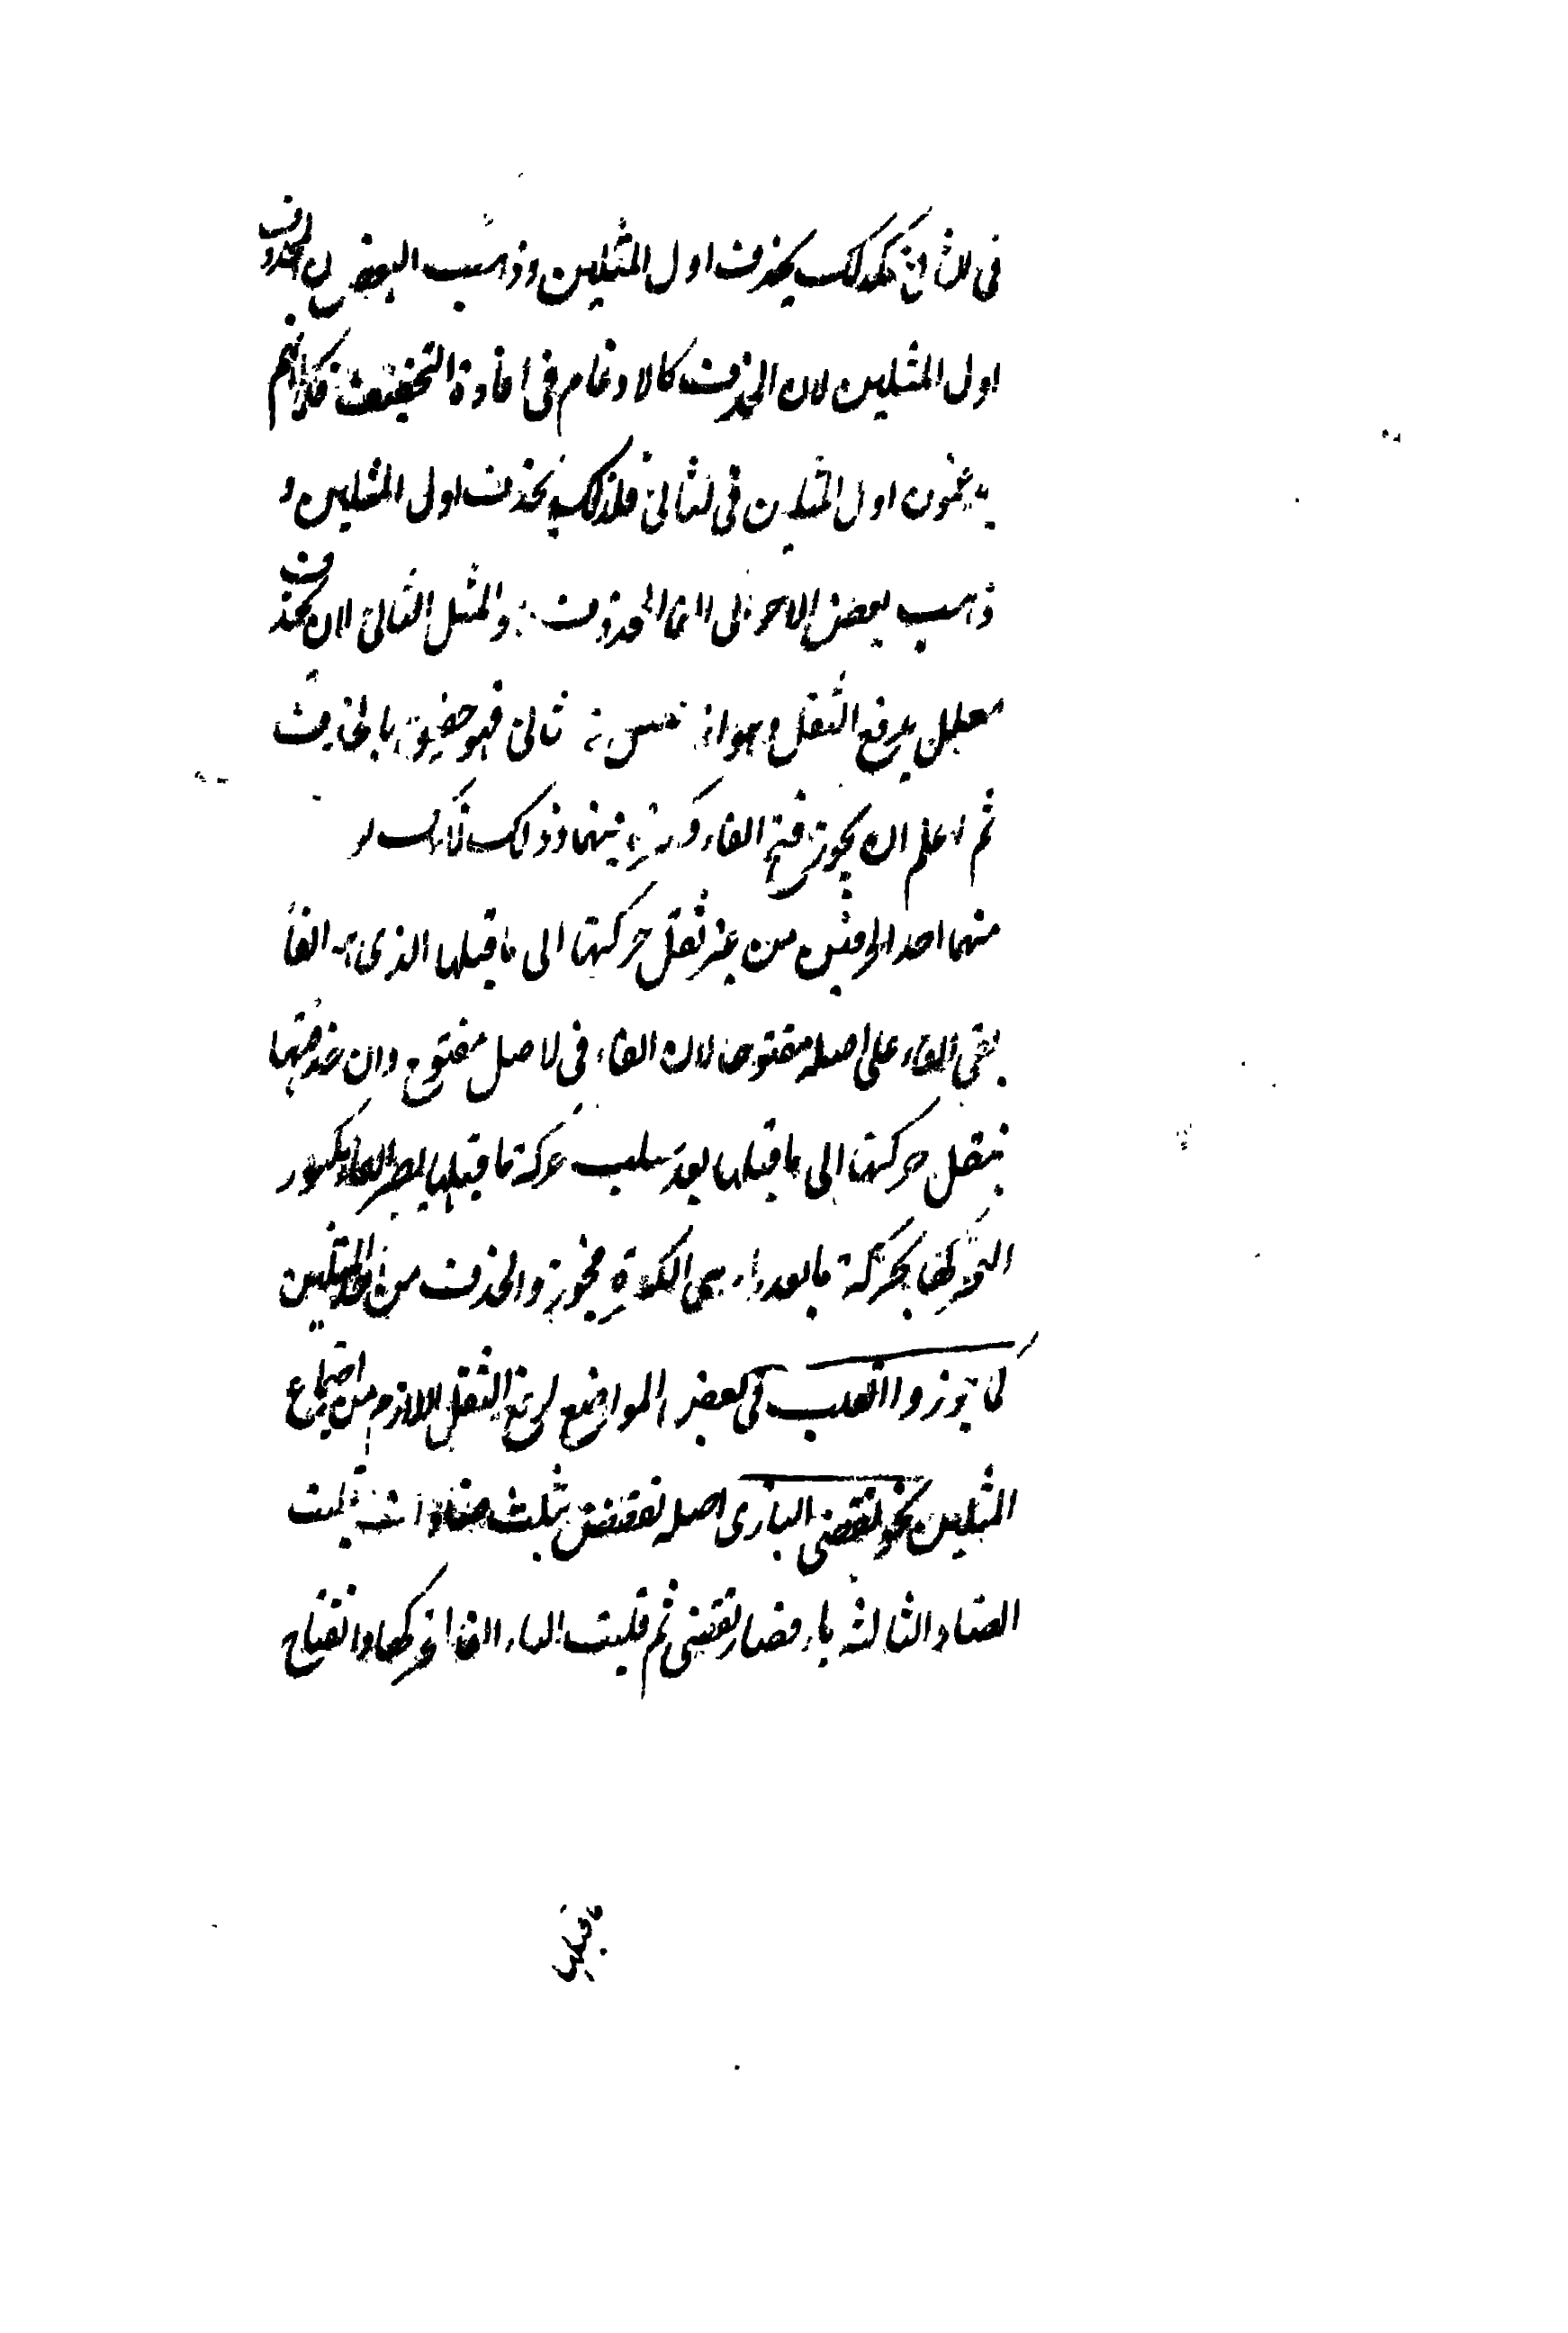 فى الثانى فكذلك يحذف اول المثلين وذهب البعض المحذوف
اول المثلين لان الحذف كالادغام فى افادة التخفيف فكما انهم
يدغمون اول المثلين فى الثانى فلذلك يحذف اول المثلين و
ذهب بعض الاخر الى ان المحذوف هو المثل الثانى لان الحذف
معلل بدفع الثقل وهو انما ثانى فهو حقيق بالحذف
ثم اعلم ان يجوز فتح الفاء وكسره فيهما وذلك لانك لو
منهما احد الحرفين من غير نقل حركتها الى ما قبلها الذى هو الفاء
بقى الفاء على اصله مفتوحا لان الفاء فى الاصل مفتوح وان حذفتها
بنقل حركتها الى ما قبلها بعد سلب حركة ما قبلها يصير الفاء مكسور
لتحركها بحركة ما بعدها هى الكسرة فجوز والحذف من احد المثلين
كما جوزوا القلب فى بعض المواضع لدفع الثقل اللازم من اجتماع
المثلين نحو تقضى البازى اصله تقضض بثلث ضادات قلبت
الضاد الثالثة ياء فصار تقضى ثم قلبت الياء الفا لتحركها وانفتاح
ما قبلها